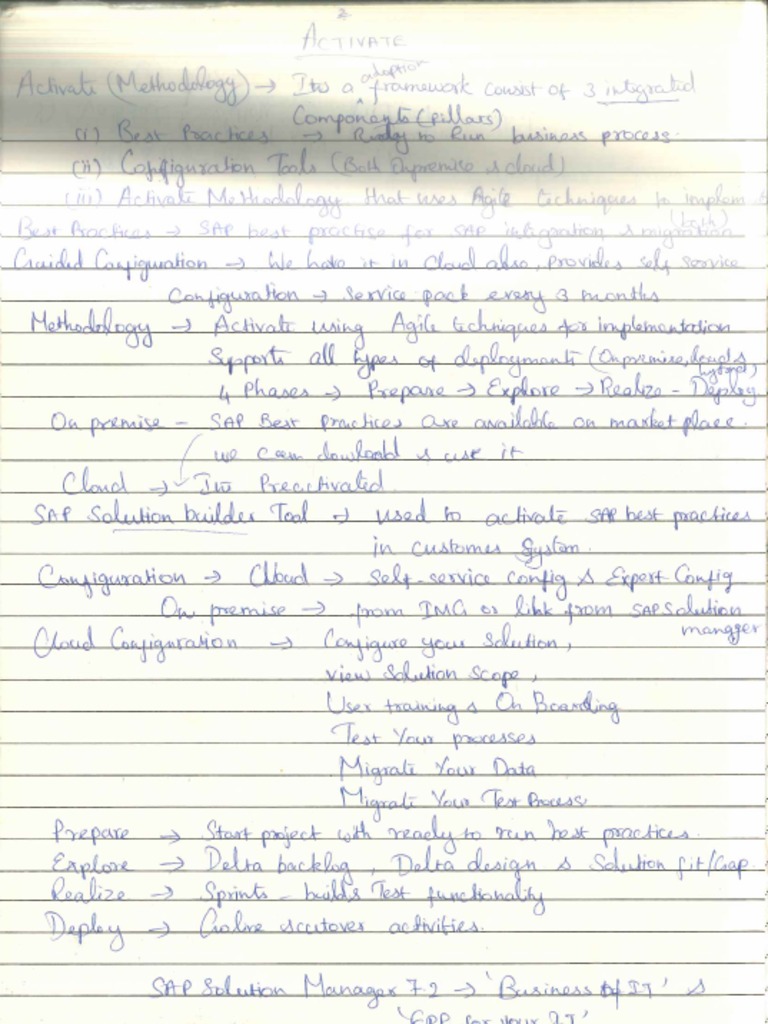 2
ACTIVATE
Activate (Methodology) → Its a adoption framework consist of 3 integrated
Components (pillars)
(i) Best Practices → Ready to Run business process.
(ii) Configuration Tools (Both Onpremise & cloud)
(iii) Activate Methodology that uses Agile techniques to implem
Best Practices → SAP best practice for SAP integration & migration (both)
Guided Configuration → We have it in Cloud also, provides self service
Configuration → Service pack every 3 months
Methodology → Activate using Agile techniques for implementation
Supports all types of deployments (Onpremise, cloud & hybrid)
4 Phases → Prepare → Explore → Realize - Deploy
On premise - SAP Best practices are available on market place.
we can download & use it
Cloud → Its Preactivated
SAP Solution builder Tool → used to activate SAP best practices
in customer System.
Configuration → Cloud → Self-service config & Expert Config
On premise → from IMG or link from SAP Solution
manager
Cloud Configuration → Configure your Solution,
view Solution Scope,
User training & On Boarding
Test Your processes
Migrate Your Data
Migrate Your Test Process
Prepare → Start project with ready to run best practices.
Explore → Delta backlog, Delta design & Solution fit/Gap.
Realize → Sprints - builds Test functionality
Deploy → Golive cutover activities.
SAP Solution Manager 7.2 → 'Business of IT' &
'ERP for your IT'